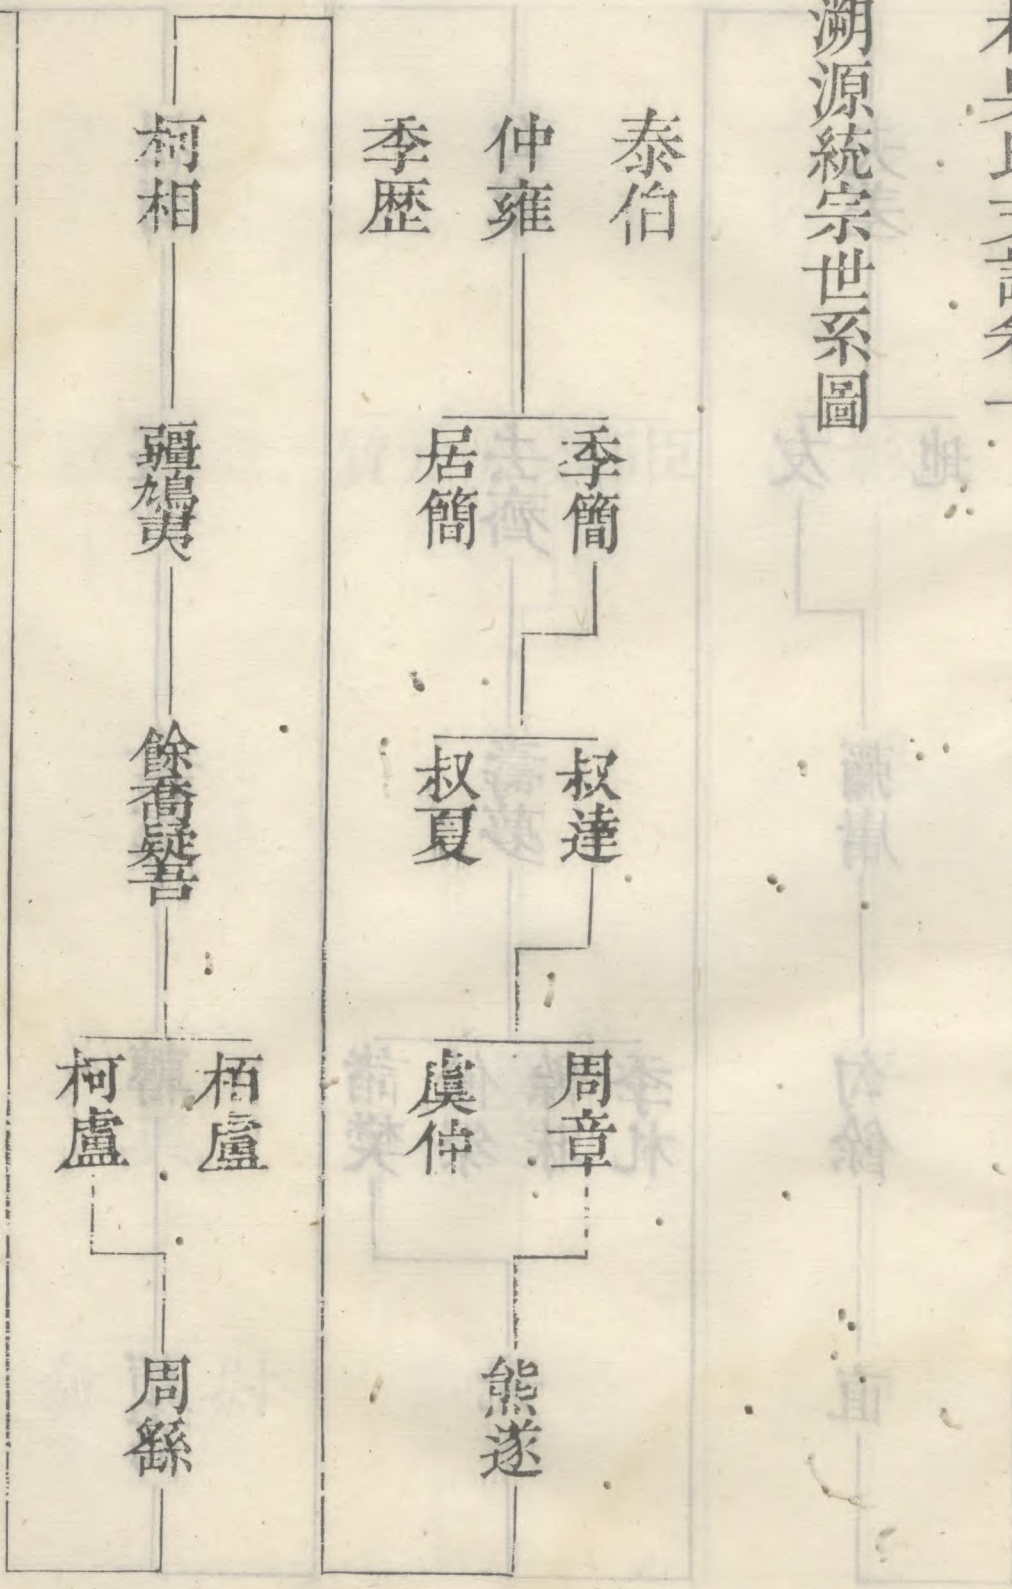 溯源統宗世系圖
泰伯
仲雍
季歴
季簡
居簡
叔達
叔夏
周章
虞仲
熊遂
柯相
疆鳩夷
餘喬疑吾
栢盧
柯盧
周繇